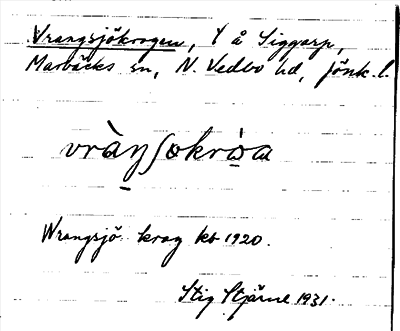 Vrangsjökrogen, t å Siggarp,
Marbäcks sn, N. Vedbo hd, Jönk. l.
Wrangsjö krog kb 1920.
Stig Stjärne 1931.